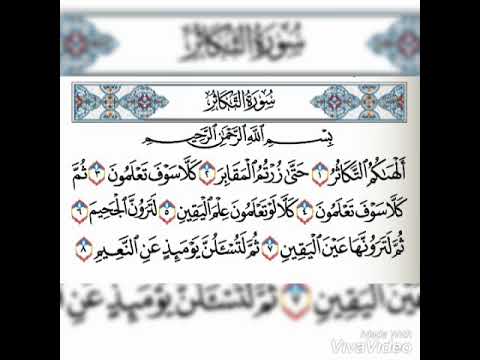 سُورَةُ التَّكَاثُرِ
سُورَةُ التَّكَاثُرِ
بِسْمِ اللَّهِ الرَّحْمَٰنِ الرَّحِيمِ
أَلْهَىٰكُمُ التَّكَاثُرُ ١ حَتَّىٰ زُرْتُمُ الْمَقَابِرَ ٢ كَلَّا سَوْفَ تَعْلَمُونَ ٣ ثُمَّ
كَلَّا سَوْفَ تَعْلَمُونَ ٤ كَلَّا لَوْ تَعْلَمُونَ عِلْمَ الْيَقِينِ ٥ لَتَرَوُنَّ الْجَحِيمَ ٦
ثُمَّ لَتَرَوُنَّهَا عَيْنَ الْيَقِينِ ٧ ثُمَّ لَتُسْـَٔلُنَّ يَوْمَئِذٍ عَنِ النَّعِيمِ ٨
عَيْنَ الْيَقِينِ ٧ ثُمَّ لَتُسْـَٔلُنَّ يَوْمَئِذٍ عَنِ
Made With
VivaVideo